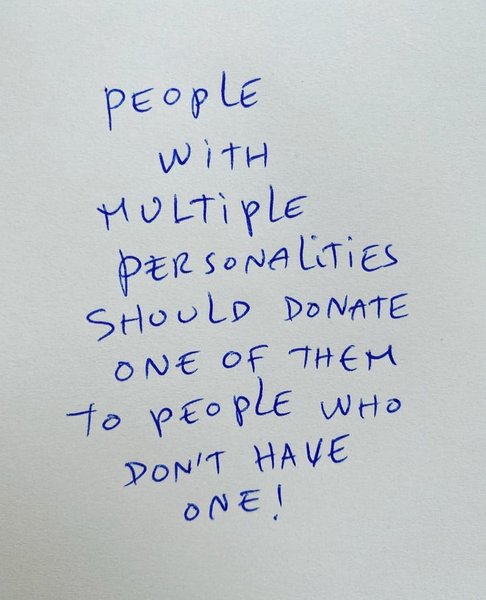 PEOPLE
WiTH
MULTiPLE
PERSONALiTiES
SHOULD DONATE
ONE OF THEM
TO PEOPLE WHO
DON'T HAVE
ONE!